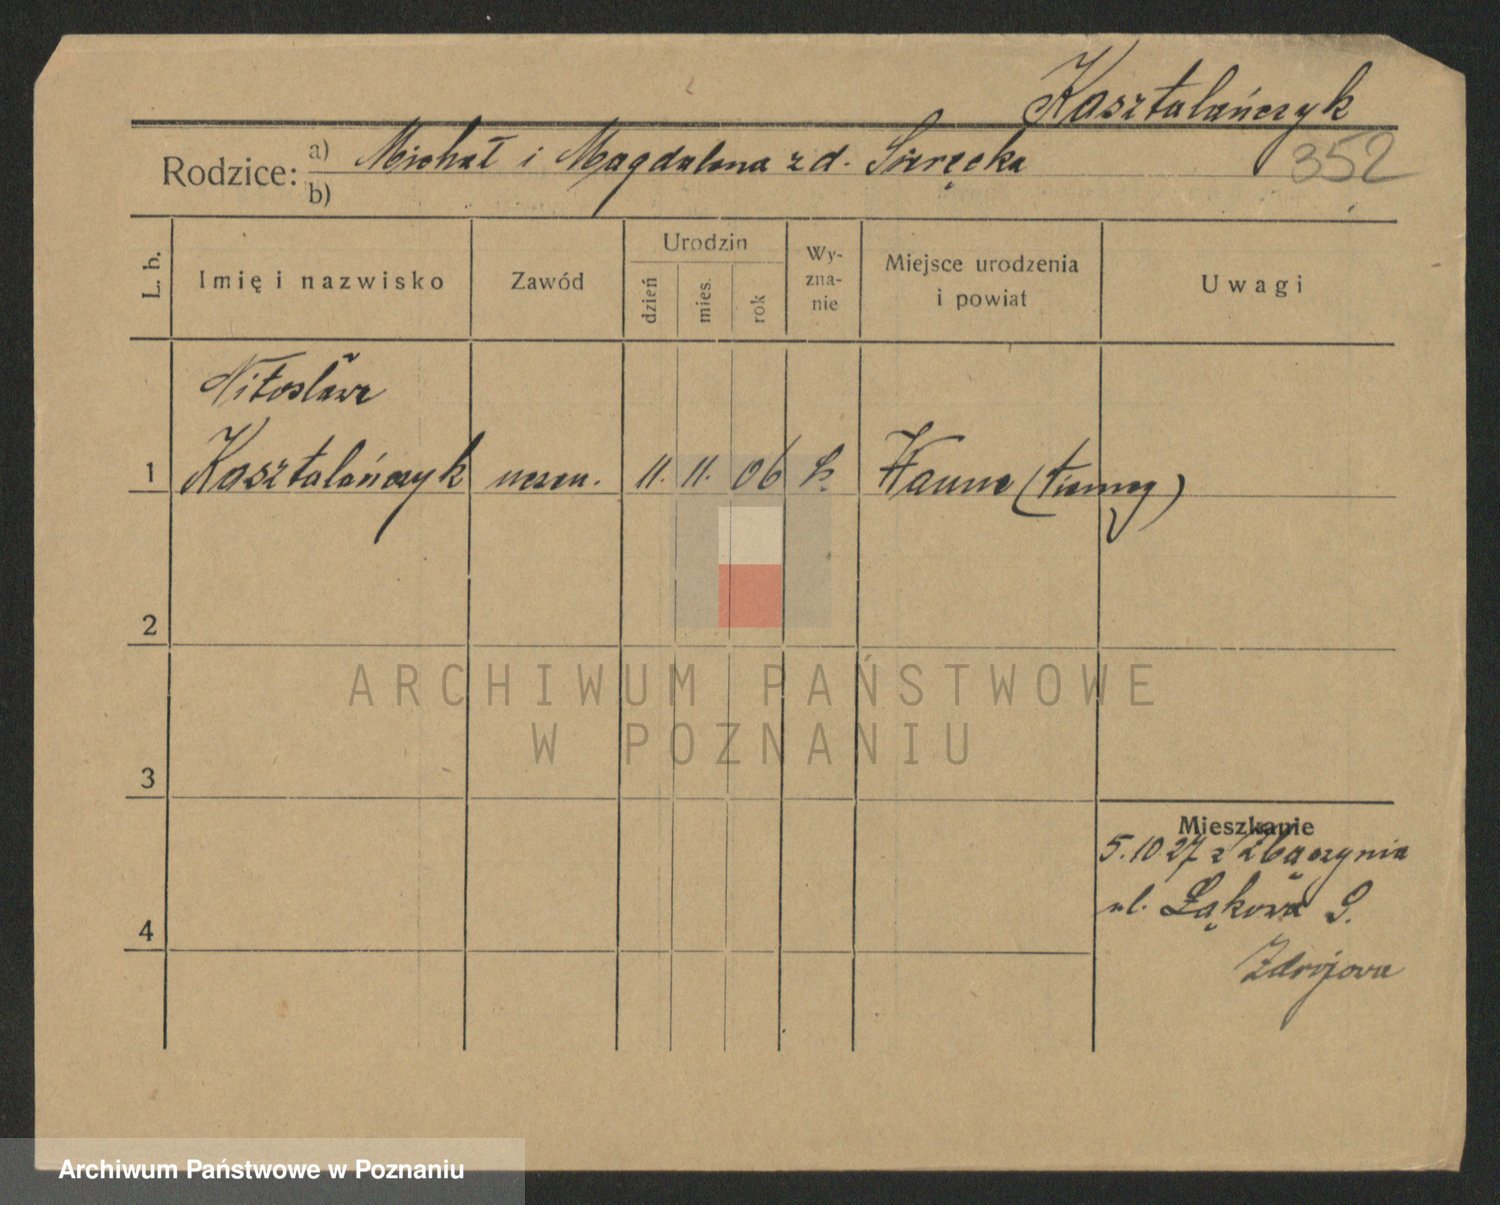 Kasztalańczyk
352
Rodzice: a) Michał i Magdalena z d.
b)
L. b.
Imię i nazwisko
Zawód
Urodzin
dzień
mies.
rok
Wy-
zna-
nie
Miejsce urodzenia
i powiat
Uwagi
1
Kasztalańczyk uczen. 11. 11. 06 k. Hanne
2
3
4
ARCHIWUM PAŃSTWOWE
W POZNANIU
Mieszkanie
5.10 27 z Zbąszynia
ul. Łąkowa
Zdrojowa
Archiwum Państwowe w Poznaniu